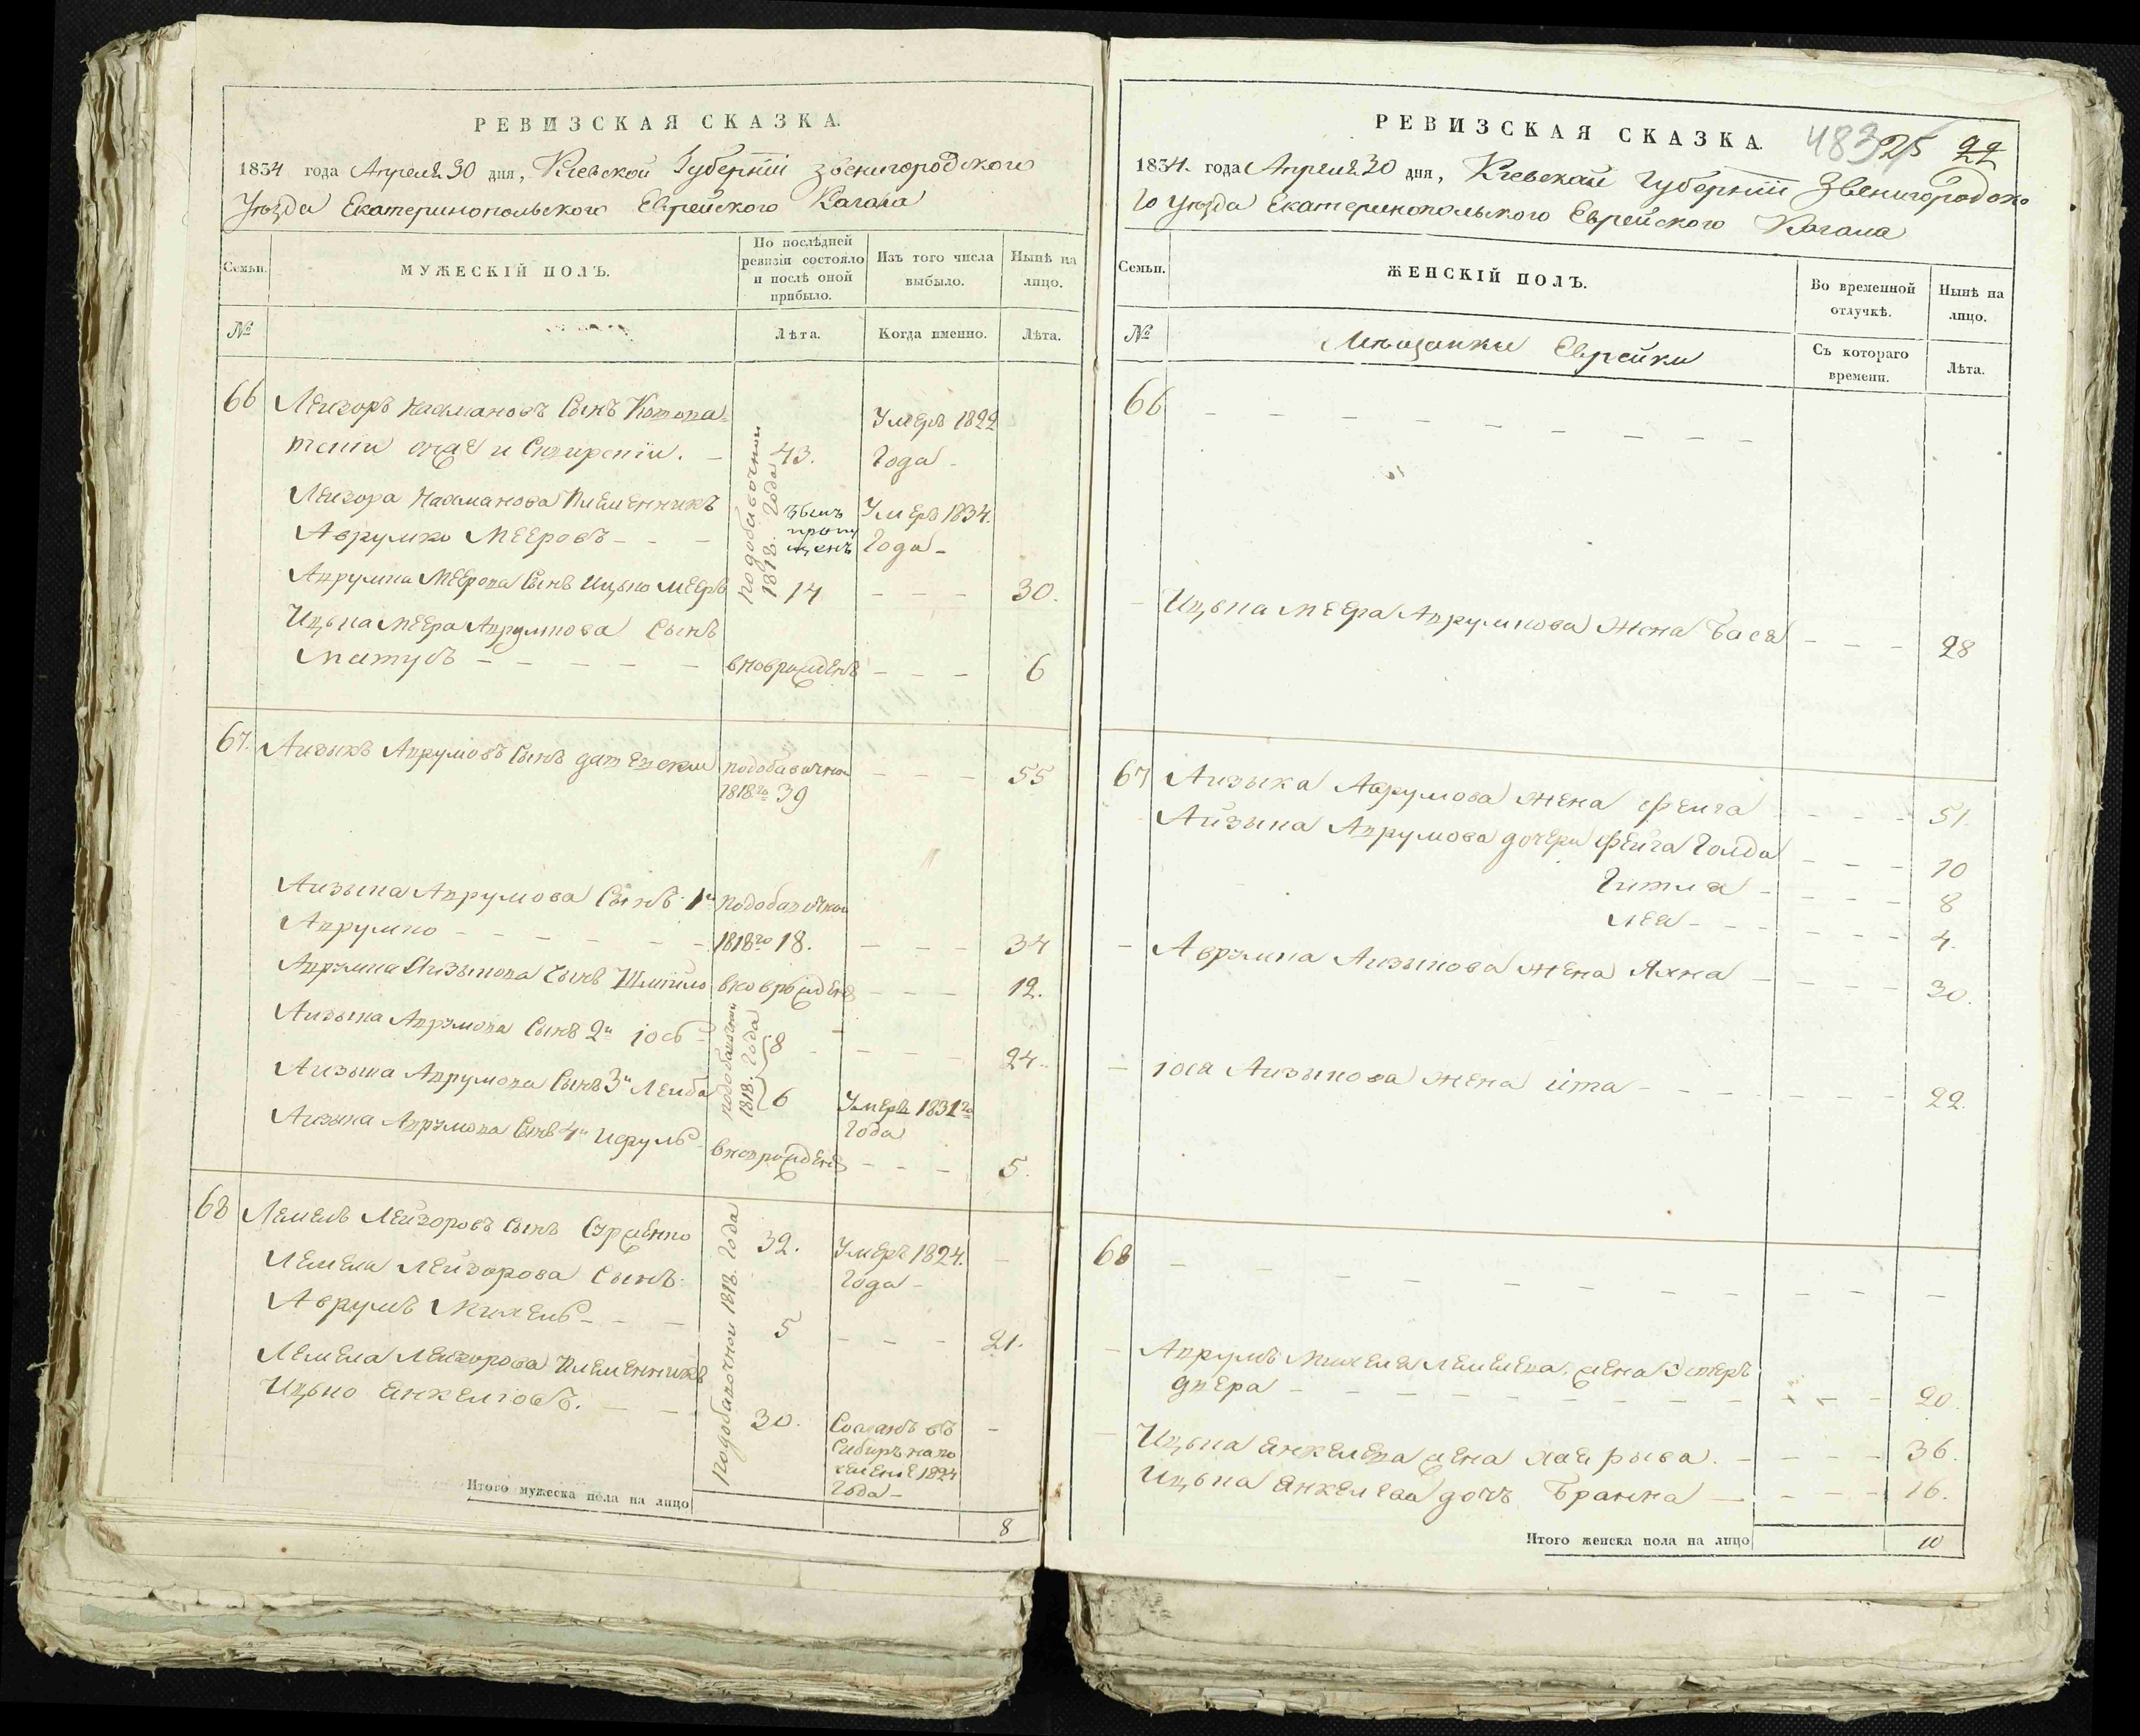 РЕВИЗСКАЯ СКАЗКА.
1834 года Апреля 30 дня, Кіевской Губерніи Звенигородского
Уѣзда Екатеринопольского Еврейского Кагала
Семьи.
МУЖЕСКІЙ ПОЛЪ.
По послѣдней ревизіи состояло и послѣ оной прибыло.
Изъ того числа выбыло.
Нынѣ на лицо.
№
Лѣта.
Когда именно.
Лѣта.
66 Лейзоръ Нахмановъ Сынъ
43.
Умеръ 1822
Года
Лейзора Нахманова Племенникъ
Аврумко Мееровъ
былъ пропущенъ
Умеръ 1834.
Года
по добавочной 1818. Года
Аврумка Меерова Сынъ Ицько Мееръ 14 30.
Ицька Меера Аврумкова Сынъ
Матусъ вноврожденъ 6
67. Айзыкъ Аврумовъ Сынъ
по добавочной
1818го 39 55
Айзыка Аврумова Сынъ 1й по добавочной
Аврумко 1818го 18. 34
Аврумка Айзыкова Сынъ Шмийло вноврожденъ 12.
Айзыка Аврумова Сынъ 2й Іось 8 24.
по добавочной 1818. Года
Айзыка Аврумова Сынъ 3й Лейба 6 Умеръ 1831го
Года
Айзыка Аврумова Сынъ 4й Исруль вноврожденъ 5.
68 Лемель Лейзоровъ Сынъ 32. Умеръ 1824.
Года
Лемеля Лейзорова Сынъ
Аврумъ Михель 5 21.
по добавочной 1818. Года
Лемеля Лейзорова Племенникъ
Ицько Янкелювъ. 30. Сосланъ въ
Сибирь на по
селеніе 1824
Года
Итого мужеска пола на лицо 8
РЕВИЗСКАЯ СКАЗКА.
483 25 22
1834. года Апреля 30 дня, Кіевской Губерніи Звенигородско
го Уѣзда Екатеринопольского Еврейского Кагала
Семьи.
ЖЕНСКІЙ ПОЛЪ.
Во временной отлучкѣ.
Нынѣ на лицо.
№
Мѣщанки Еврейки
Съ котораго времени.
Лѣта.
66
Ицька Меера Аврумкова Жена Бася 28
67 Айзыка Аврумова Жена Фейга 51.
Айзыка Аврумова дочери Фейга Голда 10
Гитля 8
Лея 4.
Аврумка Айзыкова Жена Яхна 30.
Іося Айзыкова Жена Ита 22.
68
Аврумъ Михеля Лемелева жена Эстеръ
двера 20.
Ицька Янкелева жена Хая рыва. 36.
Ицька Янкелева дочъ Бранна 16.
Итого женска пола на лицо 10